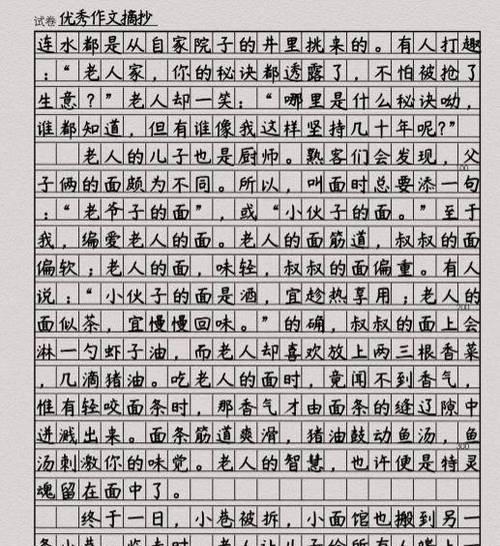 试卷 优秀作文摘抄
连水都是从自家院子的井里挑来的。有人打趣
：“老人家，你的秘诀都透露了，不怕被抢了
生意？”老人却一笑：“哪里是什么秘诀呦，
谁都知道，但有谁像我这样坚持几十年呢？”
老人的儿子也是厨师。熟客们会发现，父
100
子俩的面颇为不同。所以，叫面时总要添一句
：“老爷子的面”，或“小伙子的面。”至于
我，偏爱老人的面。老人的面筋道，叔叔的面
偏软；老人的面，味轻，叔叔的面偏重。有人
说：“小伙子的面是酒，宜趁热享用；老人的
200
面似茶，宜慢慢回味。”的确，叔叔的面上会
淋一勺虾子油，而老人却喜欢放上两三根香菜
，几滴猪油。吃老人的面时，竟闻不到香气，
惟有轻咬面条时，那香气才由面条的缝辽隙中
迸溅出来。面条筋道爽滑，猪油鼓动鱼汤，鱼
300
汤刺激你的味觉。老人的智慧，也许便是特灵
魂留在面中了。
终于一日，小巷被拆，小面馆也搬到另一